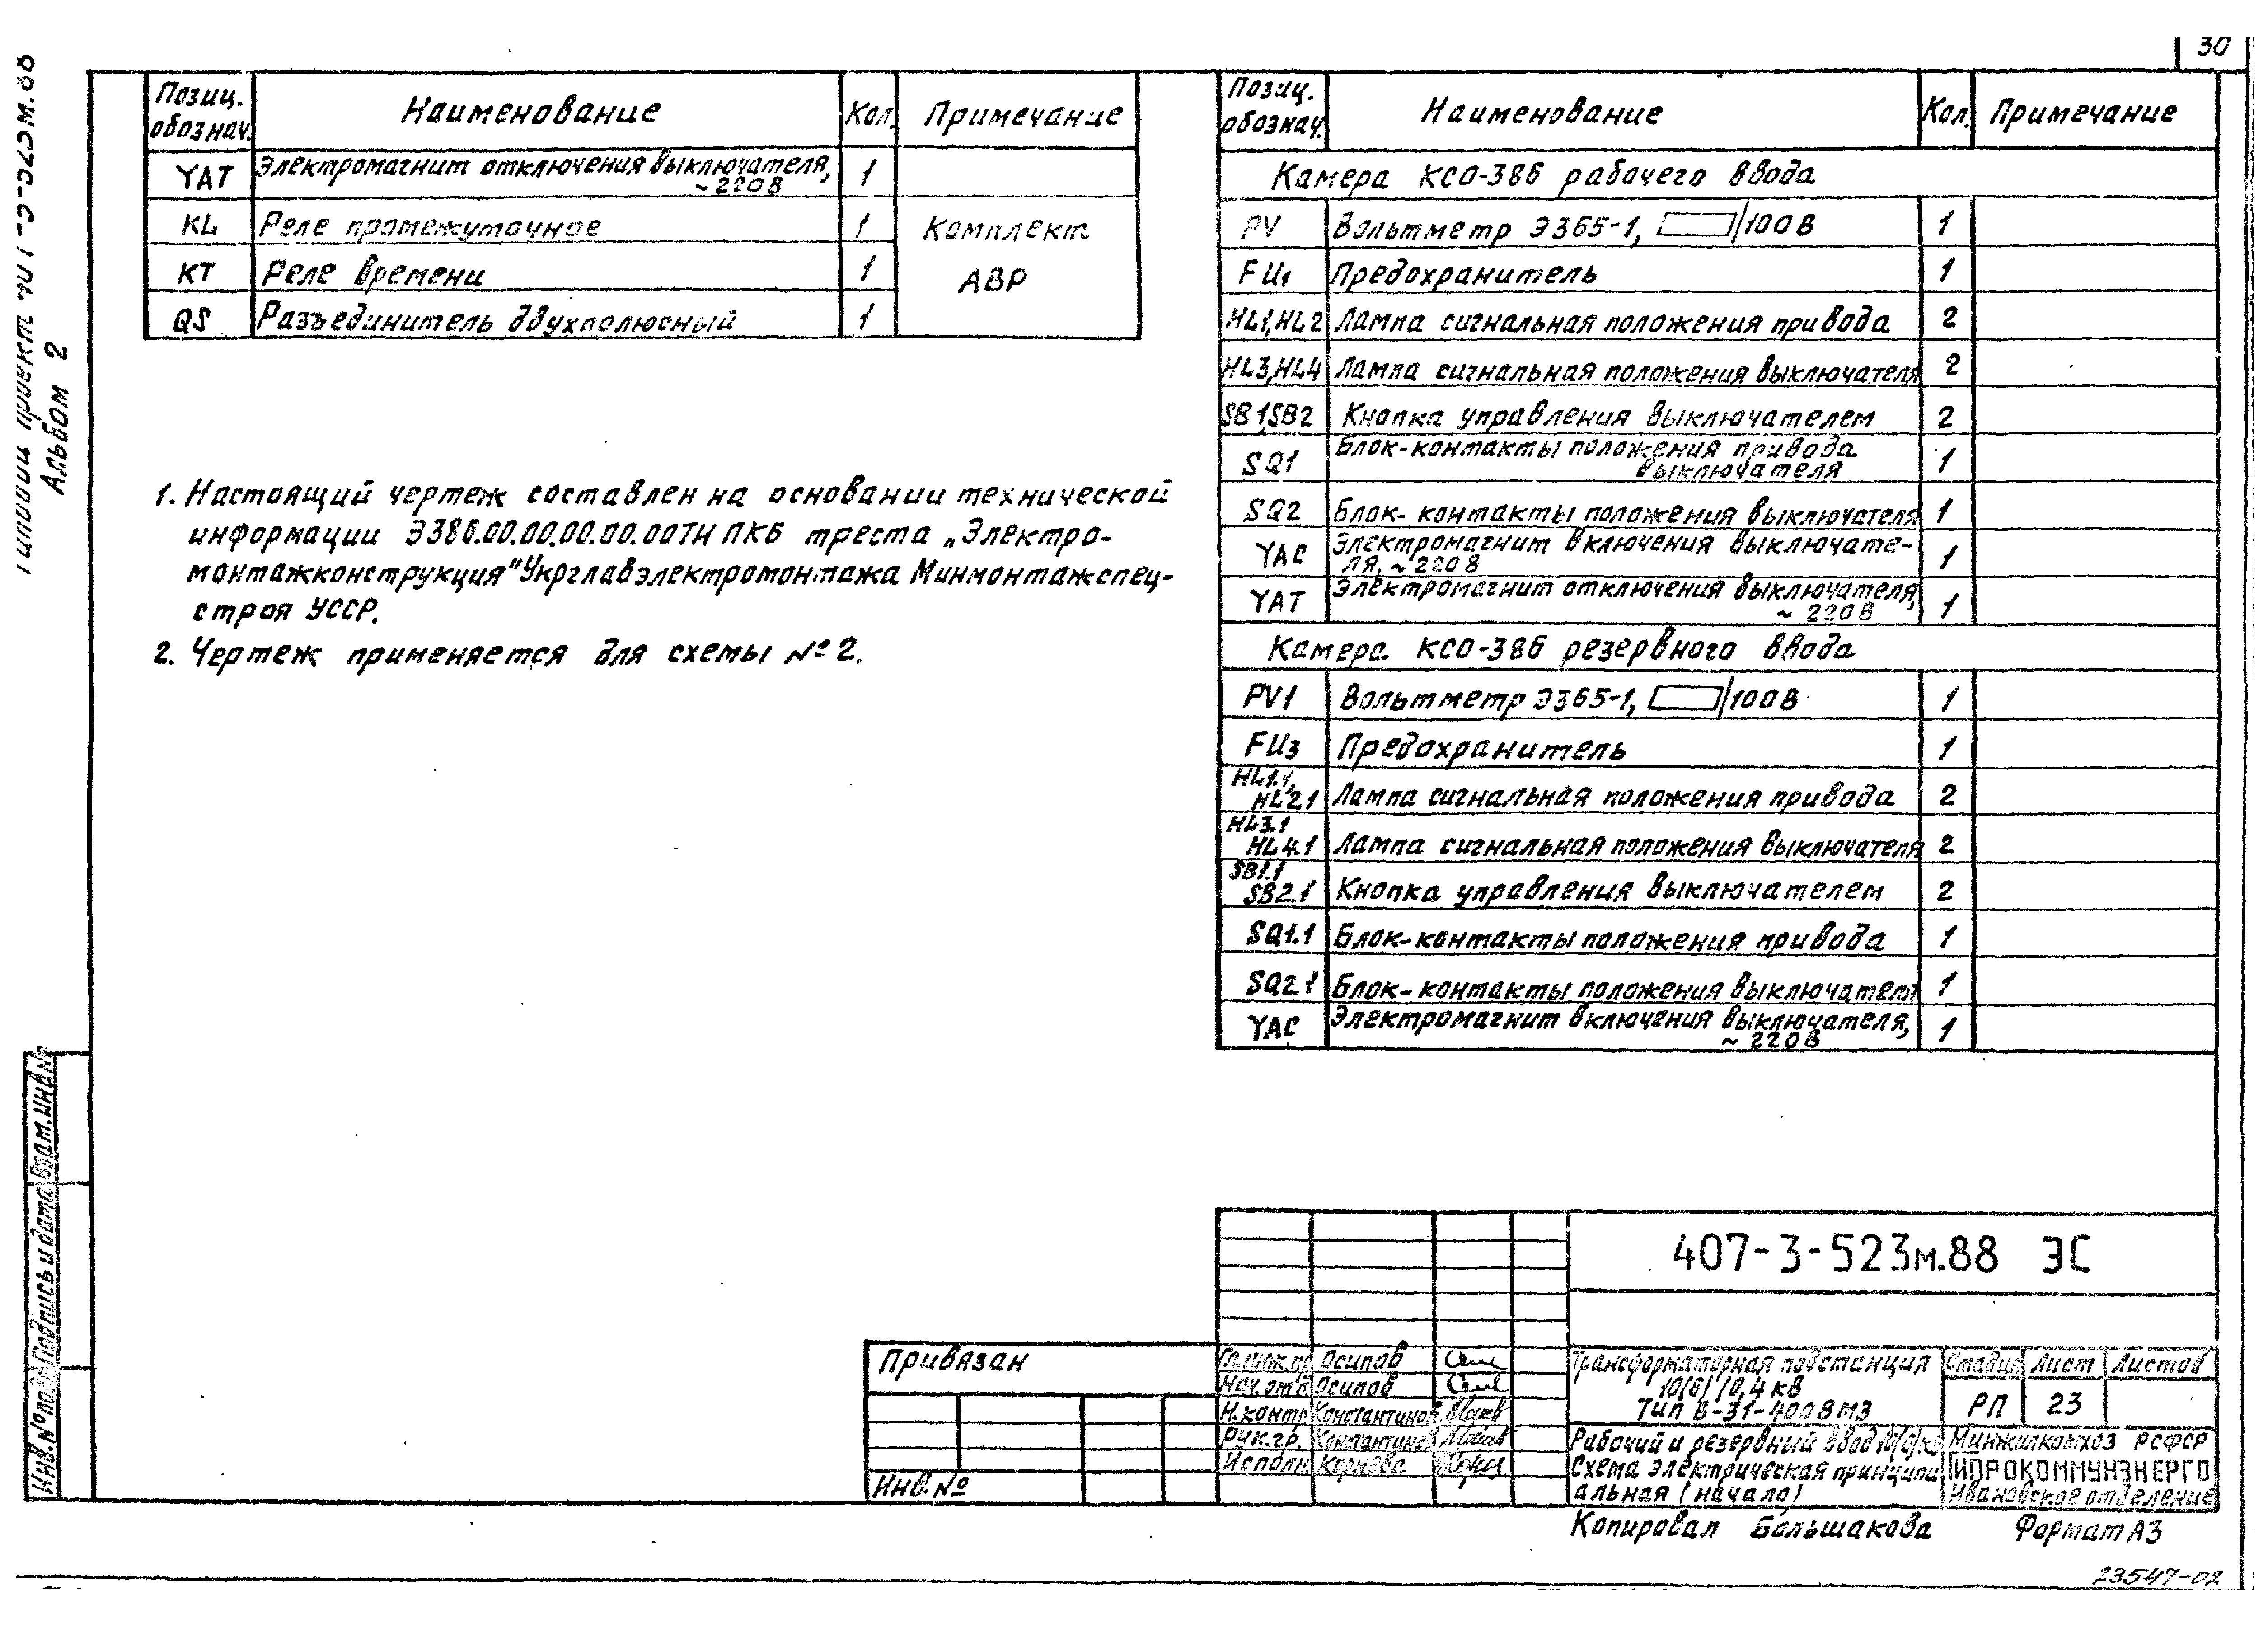 30
Типовой проект 407-3-523м.88
Альбом 2
Позиц. обознач. Наименование Кол. Примечание
YAT Электромагнит отключения выключателя, ~220В 1
KL Реле промежуточное 1 Комплект
KT Реле времени 1 АВР
QS Разъединитель двухполюсный 1
1. Настоящий чертеж составлен на основании технической
информации Э386.00.00.00.00.00ТИ ПКБ треста „Электро-
монтажконструкция" Укрглавэлектромонтажа Минмонтажспец-
строя УССР.
2. Чертеж применяется для схемы №2.
Позиц. обознач. Наименование Кол. Примечание
Камера КСО-386 рабочего ввода
PV Вольтметр Э365-1, /100В 1
FU1 Предохранитель 1
HL1,HL2 Лампа сигнальная положения привода 2
HL3,HL4 Лампа сигнальная положения выключателя 2
SB1,SB2 Кнопка управления выключателем 2
SQ1 Блок-контакты положения привода
выключателя 1
SQ2 Блок-контакты положения выключателя 1
YAC Электромагнит включения выключате-
ля, ~220В 1
YAT Электромагнит отключения выключателя,
~220В 1
Камера КСО-386 резервного ввода
PV1 Вольтметр Э365-1, /100В 1
FU3 Предохранитель 1
HL1.1, HL2.1 Лампа сигнальная положения привода 2
HL3.1 HL4.1 Лампа сигнальная положения выключателя 2
SB1.1 SB2.1 Кнопка управления выключателем 2
SQ1.1 Блок-контакты положения привода 1
SQ2.1 Блок-контакты положения выключателя 1
YAC Электромагнит включения выключателя,
~220В 1
Инв.№подл. Подпись и дата Взам.инв.№
407-3-523м.88 ЭС
Привязан
Инв.№
Гл.инж.пр Осипов
Нач.отд Осипов
Н.контр Константинов
Рук.гр. Константинов
Исполн Корнева
Трансформаторная подстанция
10(6)/0,4 кВ
Тип В-31-400ВМ3
Стадия Лист Листов
РП 23
Рабочий и резервный ввод 10(6)кВ
Схема электрическая принципи
альная (начало)
Минжилкомхоз РСФСР
ГИПРОКОММУНЭНЕРГО
Ивановское отделение
Копировал Большакова Формат А3
23547-02